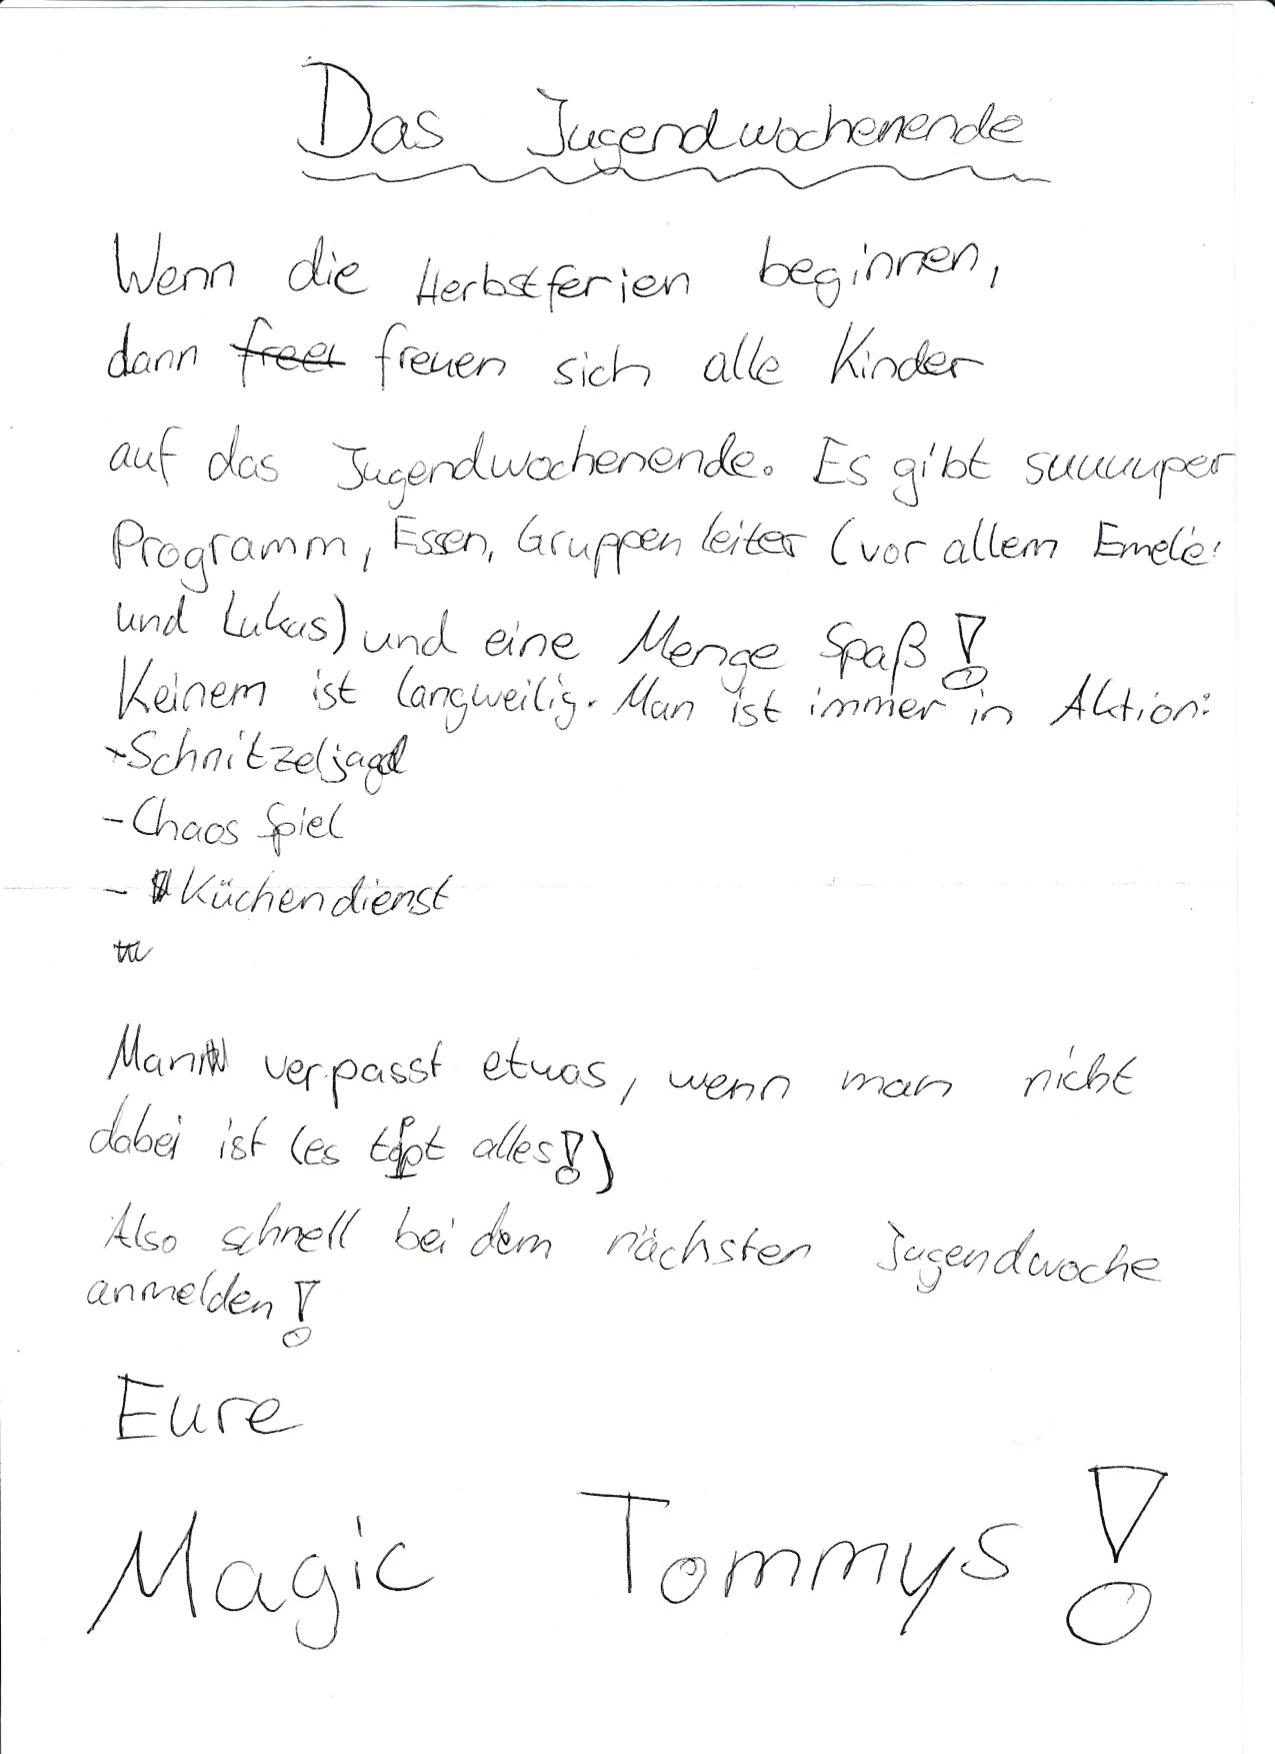 Das Jugendwochenende
Wenn die Herbstferien beginnen,
dann freuen sich alle Kinder
auf das Jugendwochenende. Es gibt suuuuper
Programm, Essen, Gruppenleiter (vor allem
und Lukas) und eine Menge Spaß!
Keinem ist langweilig. Man ist immer in Aktion:
-Schnitzeljagd
-Chaos Spiel
- Küchendienst
Man verpasst etwas, wenn man nicht
dabei ist (es topt alles!)
Also schnell bei dem nächsten Jugendwoche
anmelden!
Eure
Magic Tommys!